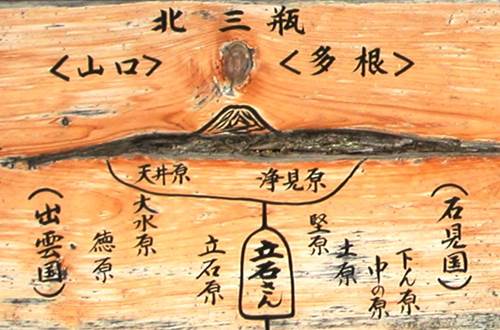 北三瓶
<山口>
<多根>
天井原
浄見原
(出雲国)
徳原
大水原
立石原
立石さん
堅原
土原
中の原
下ん原
(石見国)